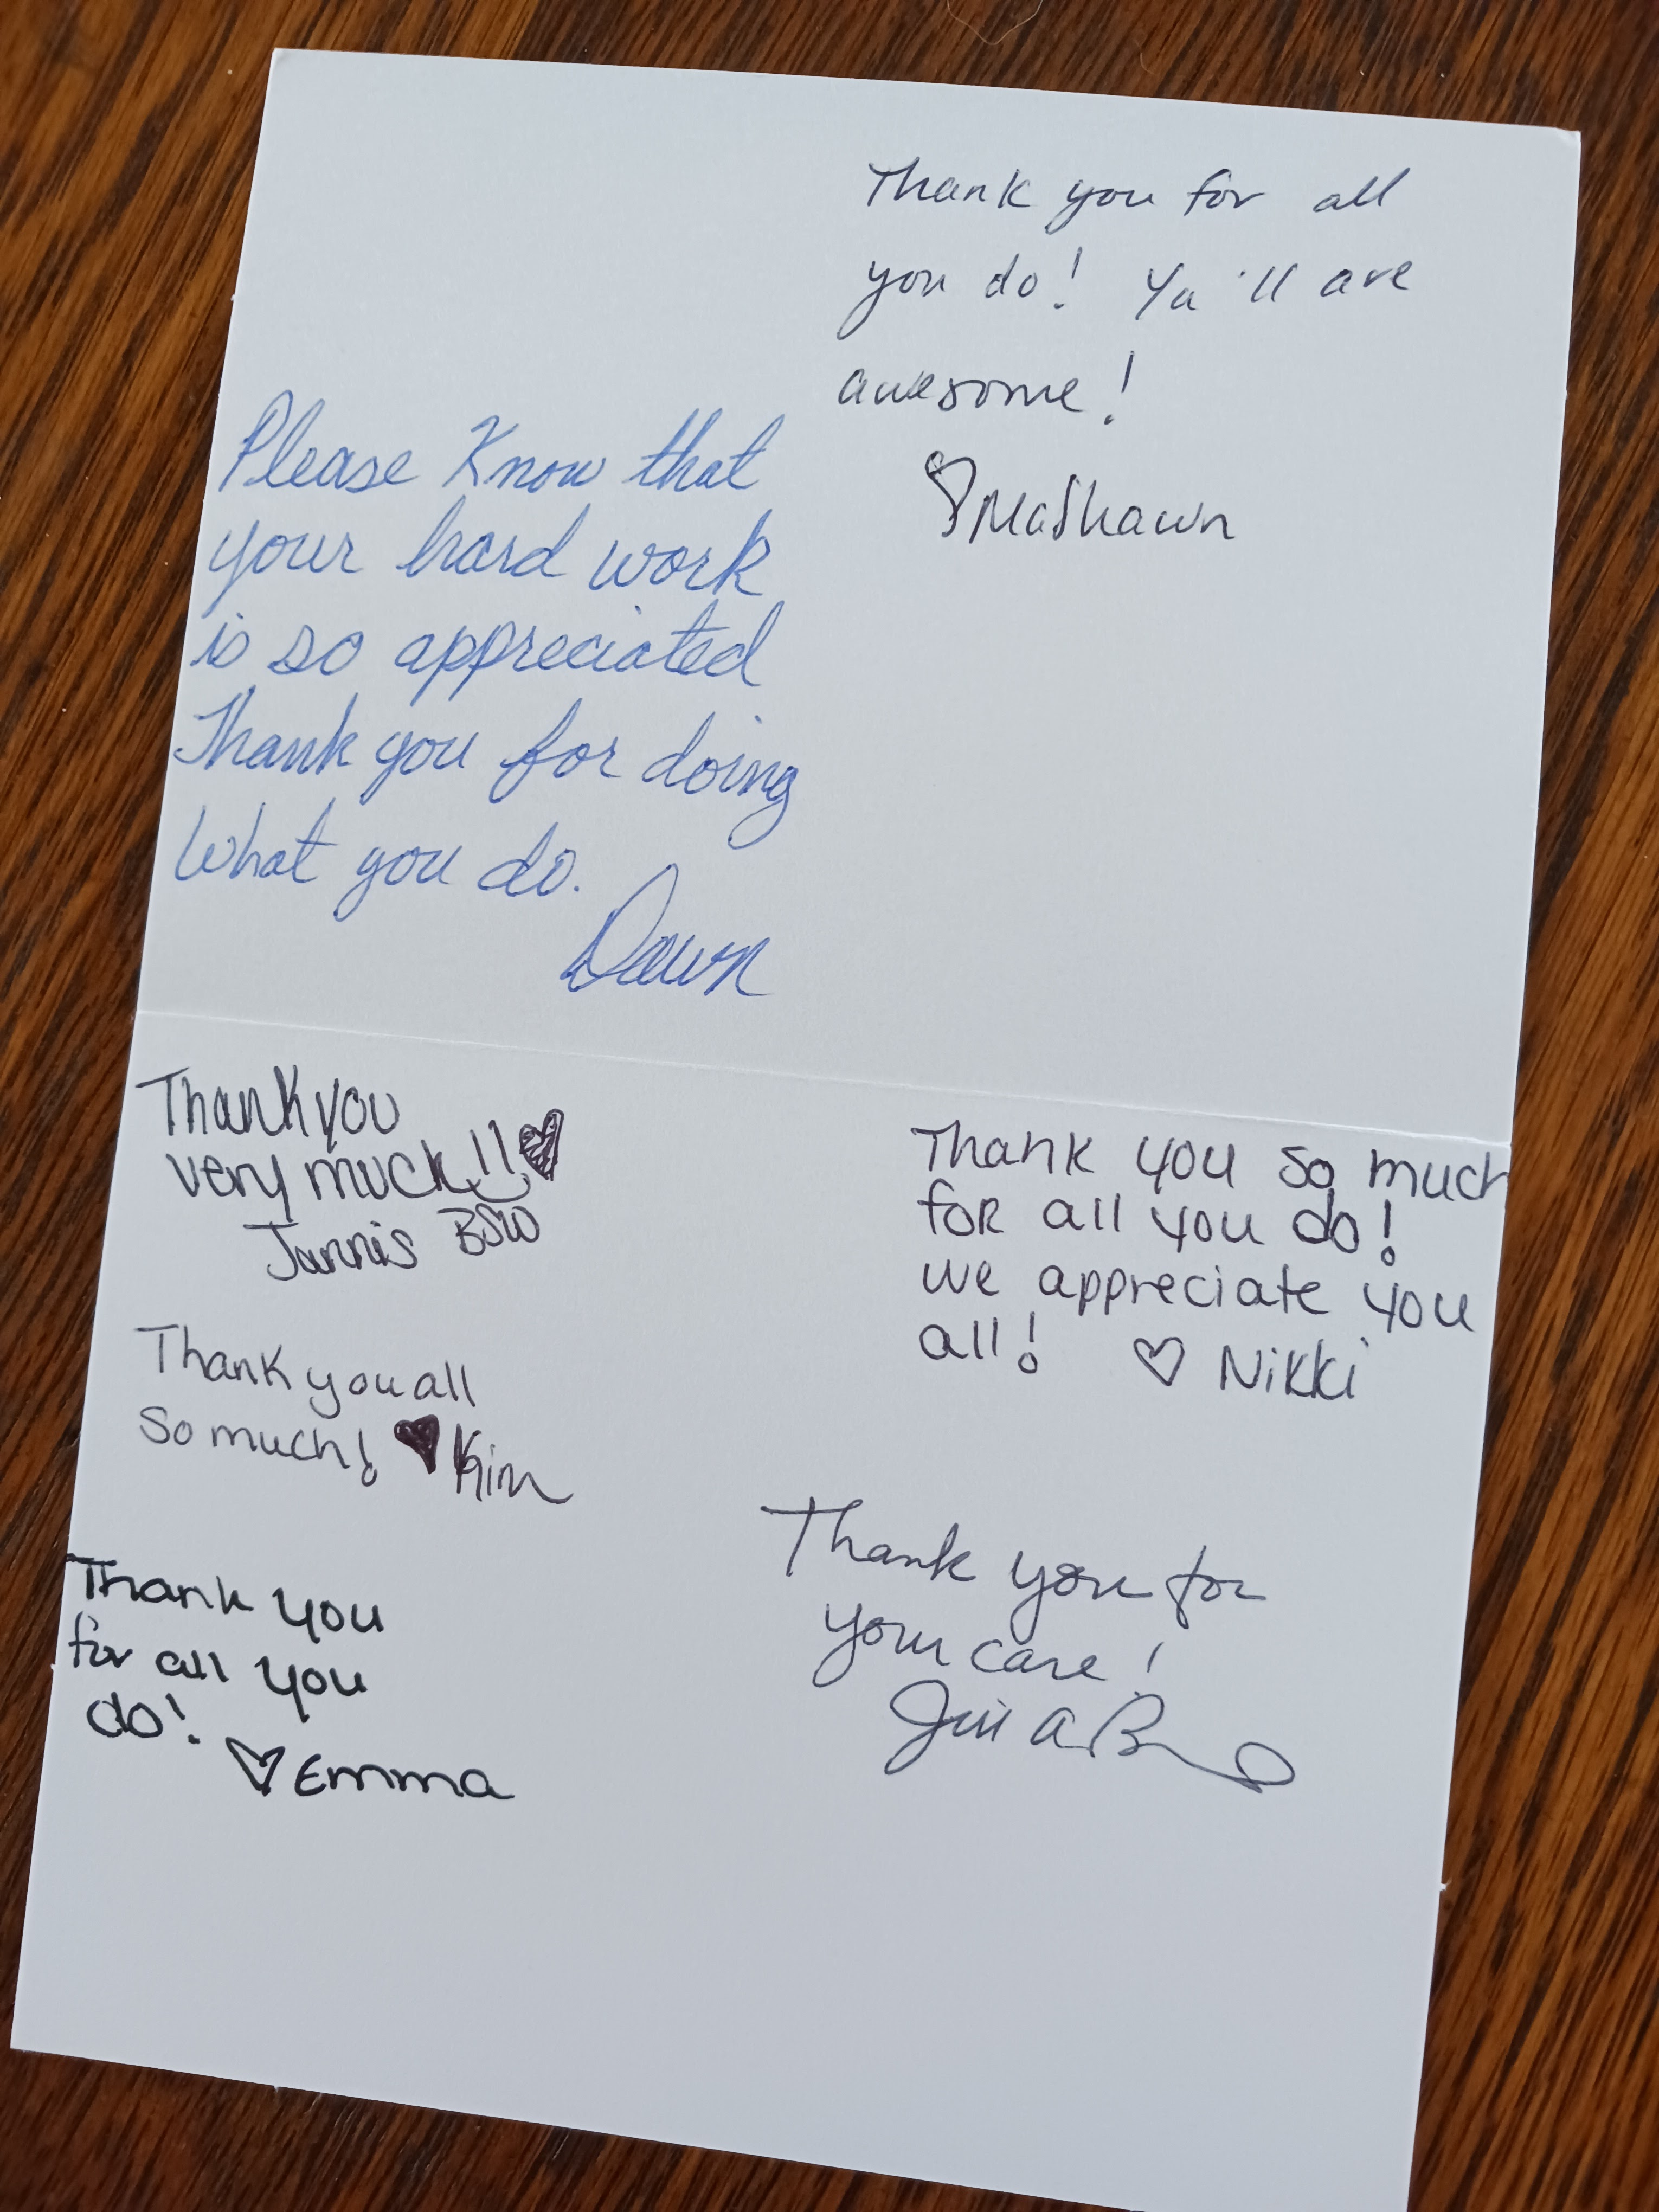 Thank you for all
you do! Ya'll are
awesome!
♡ MaShawn
Please Know that
your hard work
is so appreciated
Thank you for doing
What you do.
Dawn
Thank you
very much!!♥
Jannis BSW
Thank you all
So much! ♥ Kim
Thank you
for all you
do!
♡ Emma
Thank you so much
for all you do!
we appreciate you
all! ♡ Nikki
Thank you for
your care!